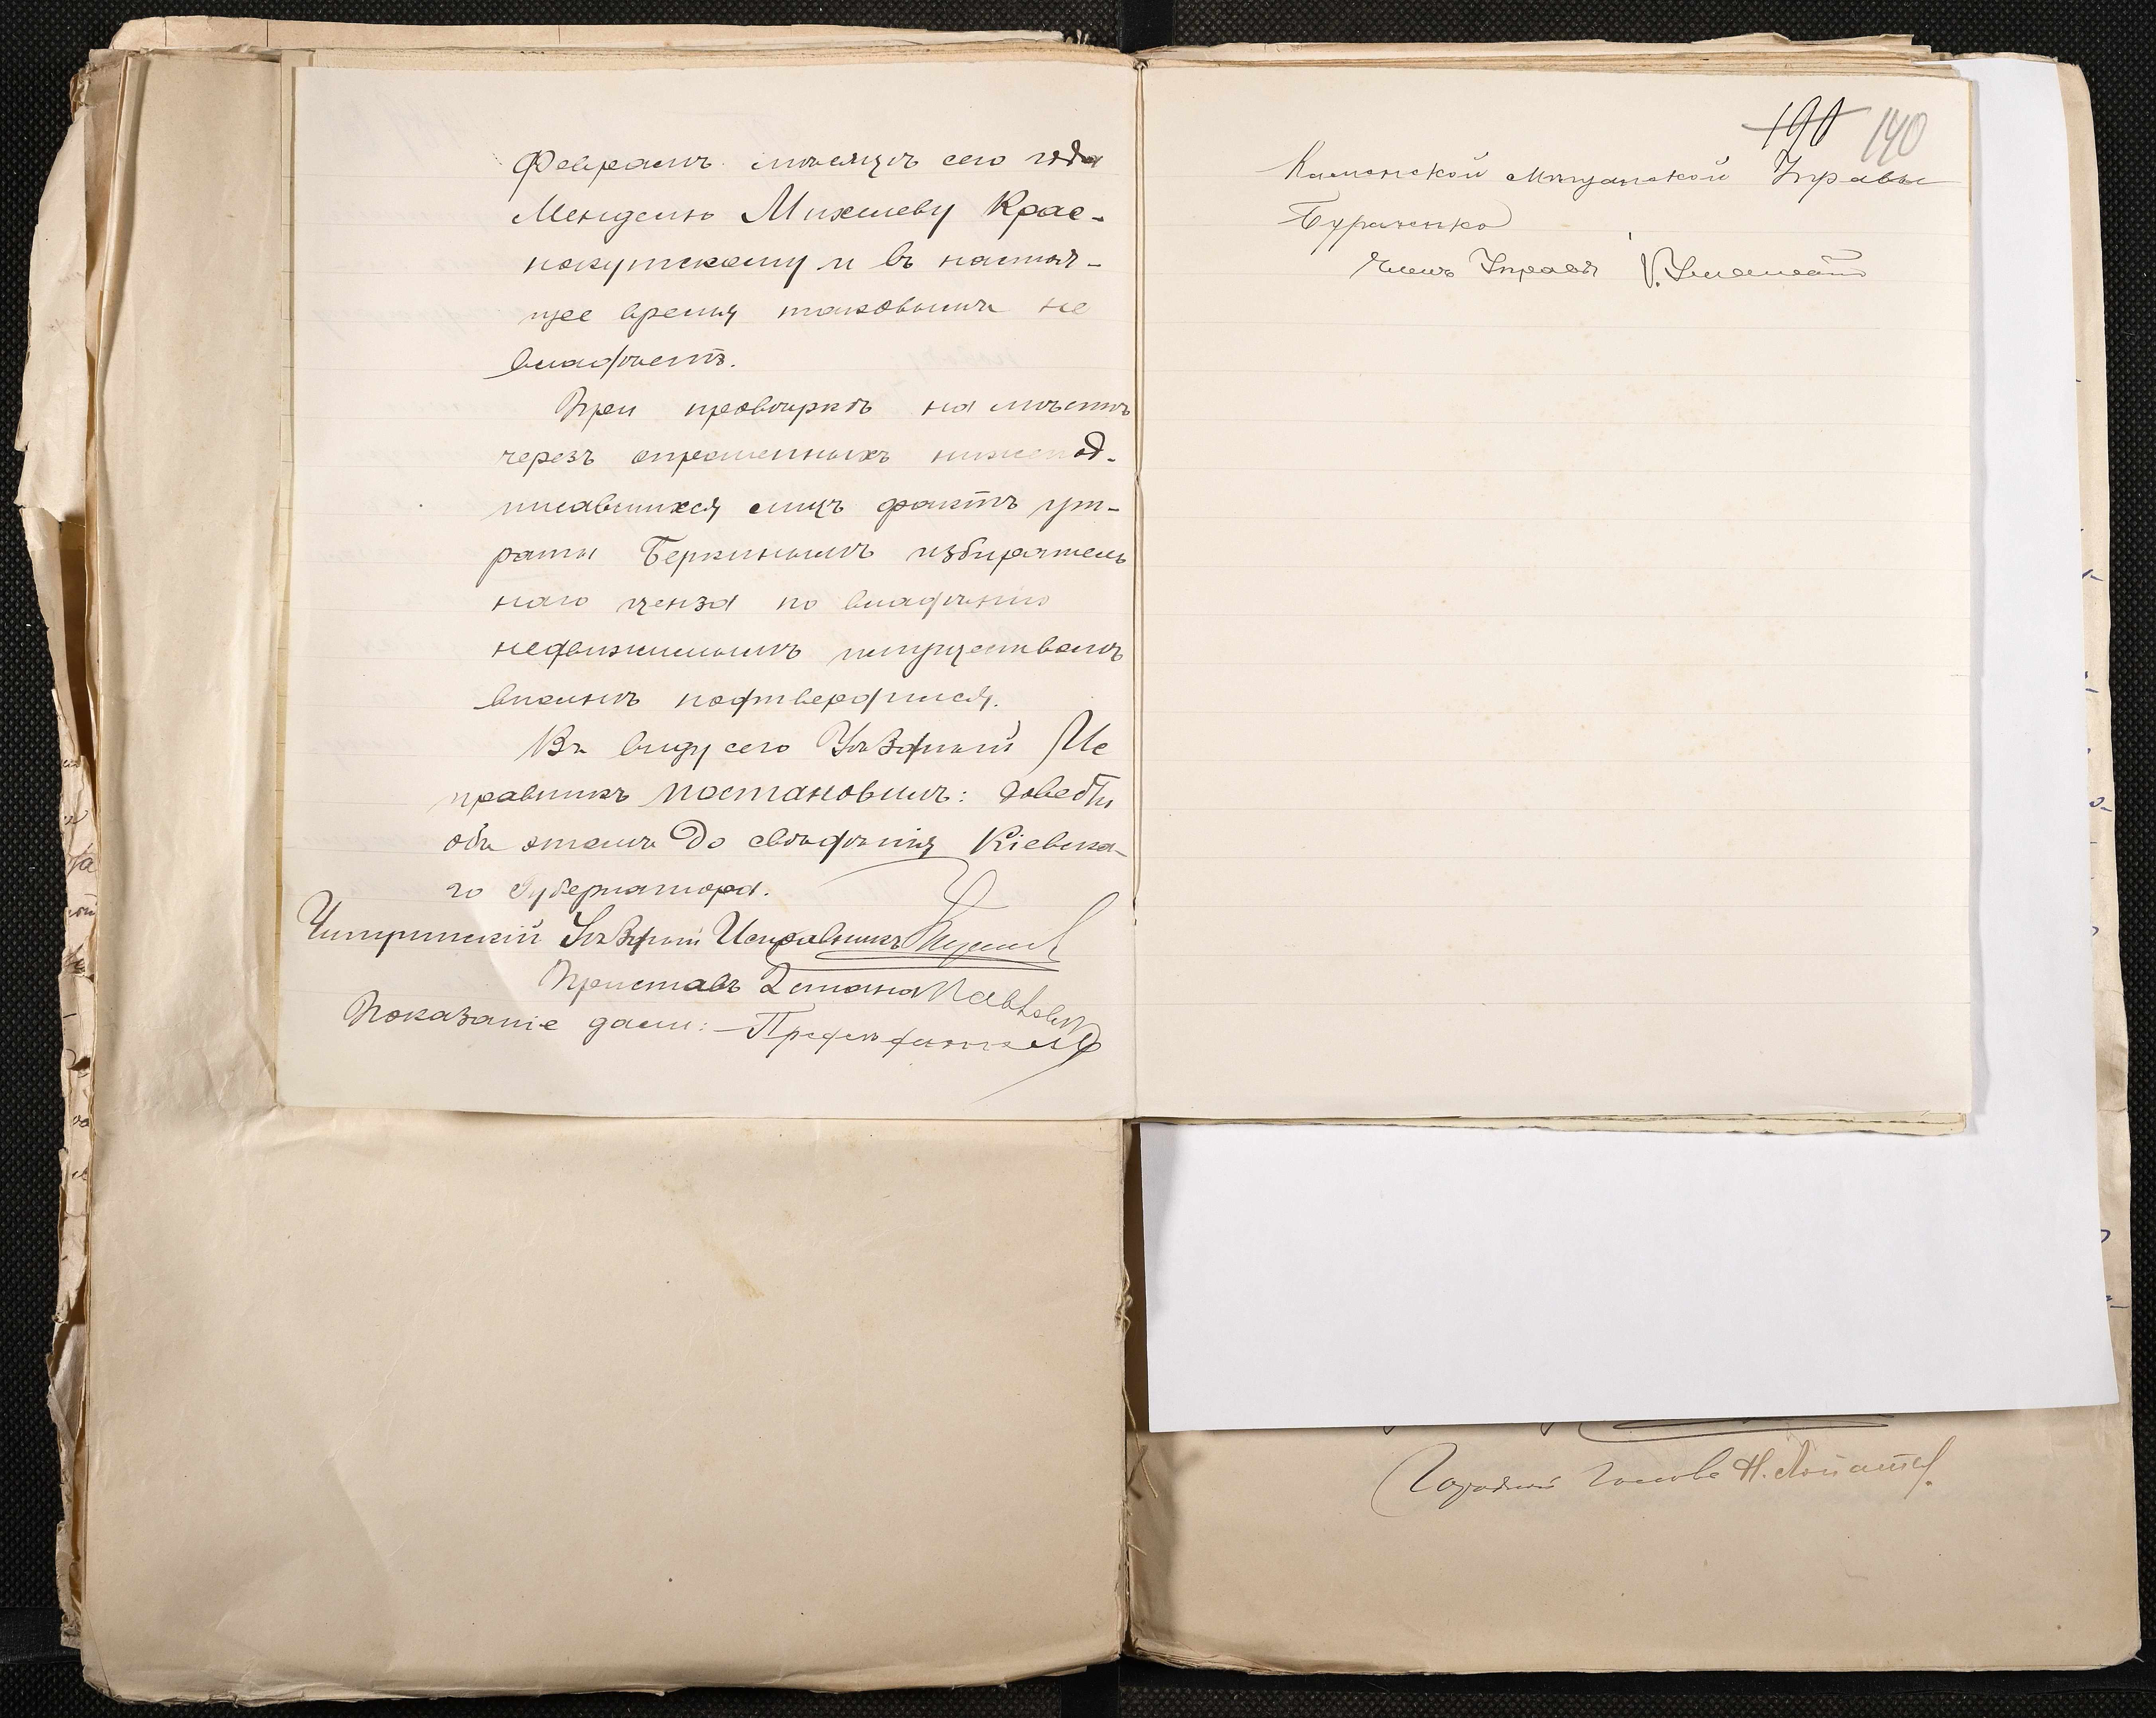 Февралѣ мѣсяцѣ сего года
Менделю Михелеву Крас-
нокутскому и въ настоя-
щее время таковымъ не
владѣетъ.
При провѣркѣ на мѣстѣ
черезъ опрошенныхъ нижепод-
писавшихся лицъ фактъ ут-
раты Беркинымъ избиратель
наго ценза по владѣнію
недвижимымъ имуществомъ
вполнѣ подтвердился.
Въ виду сего Уѣздный Ис
правникъ постановилъ: довести
объ этомъ до свѣдѣнія Кіевска-
го Губернатора.
Чигиринскій Уѣздный Исправникъ
Приставъ 2 стана
Показаніе дали: Предсѣдатель
190 140
Каменской Мѣщанской Управы
Бураченко
Членъ Управы
Городской Голова Н.